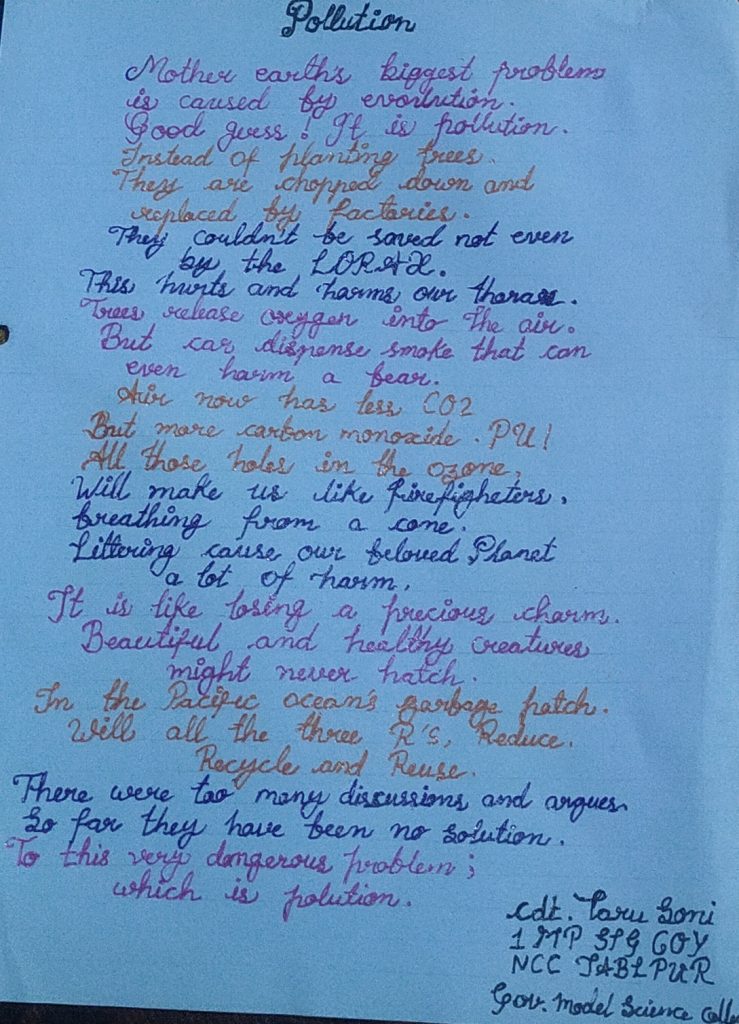 Pollution
Mother earth's biggest problem
is caused by evoulution.
Good guess! It is pollution.
Instead of planting trees.
They are chopped down and
replaced by factories.
They couldn't be saved not even
by the LORAX.
This hurts and harms our
Trees release oxygen into the air.
But car dispense smoke that can
even harm a bear.
Air now has less CO2
But more carbon monoxide. PU!
All those holes in the ozone,
Will make us like firefigheters,
breathing from a cone.
Littering cause our beloved Planet
a lot of harm,
It is like losing a precious charm.
Beautiful and healthy creatures
might never hatch.
In the Pacific ocean's garbage patch.
Will all the three R's, Reduce.
Recycle and Reuse.
There were too many discussions and argues
So far they have been no solution.
To this very dangerous problem;
which is polution.
Cdt. Taru Soni
1 MP SIG COY
NCC JABLPUR
Gov. Model Science